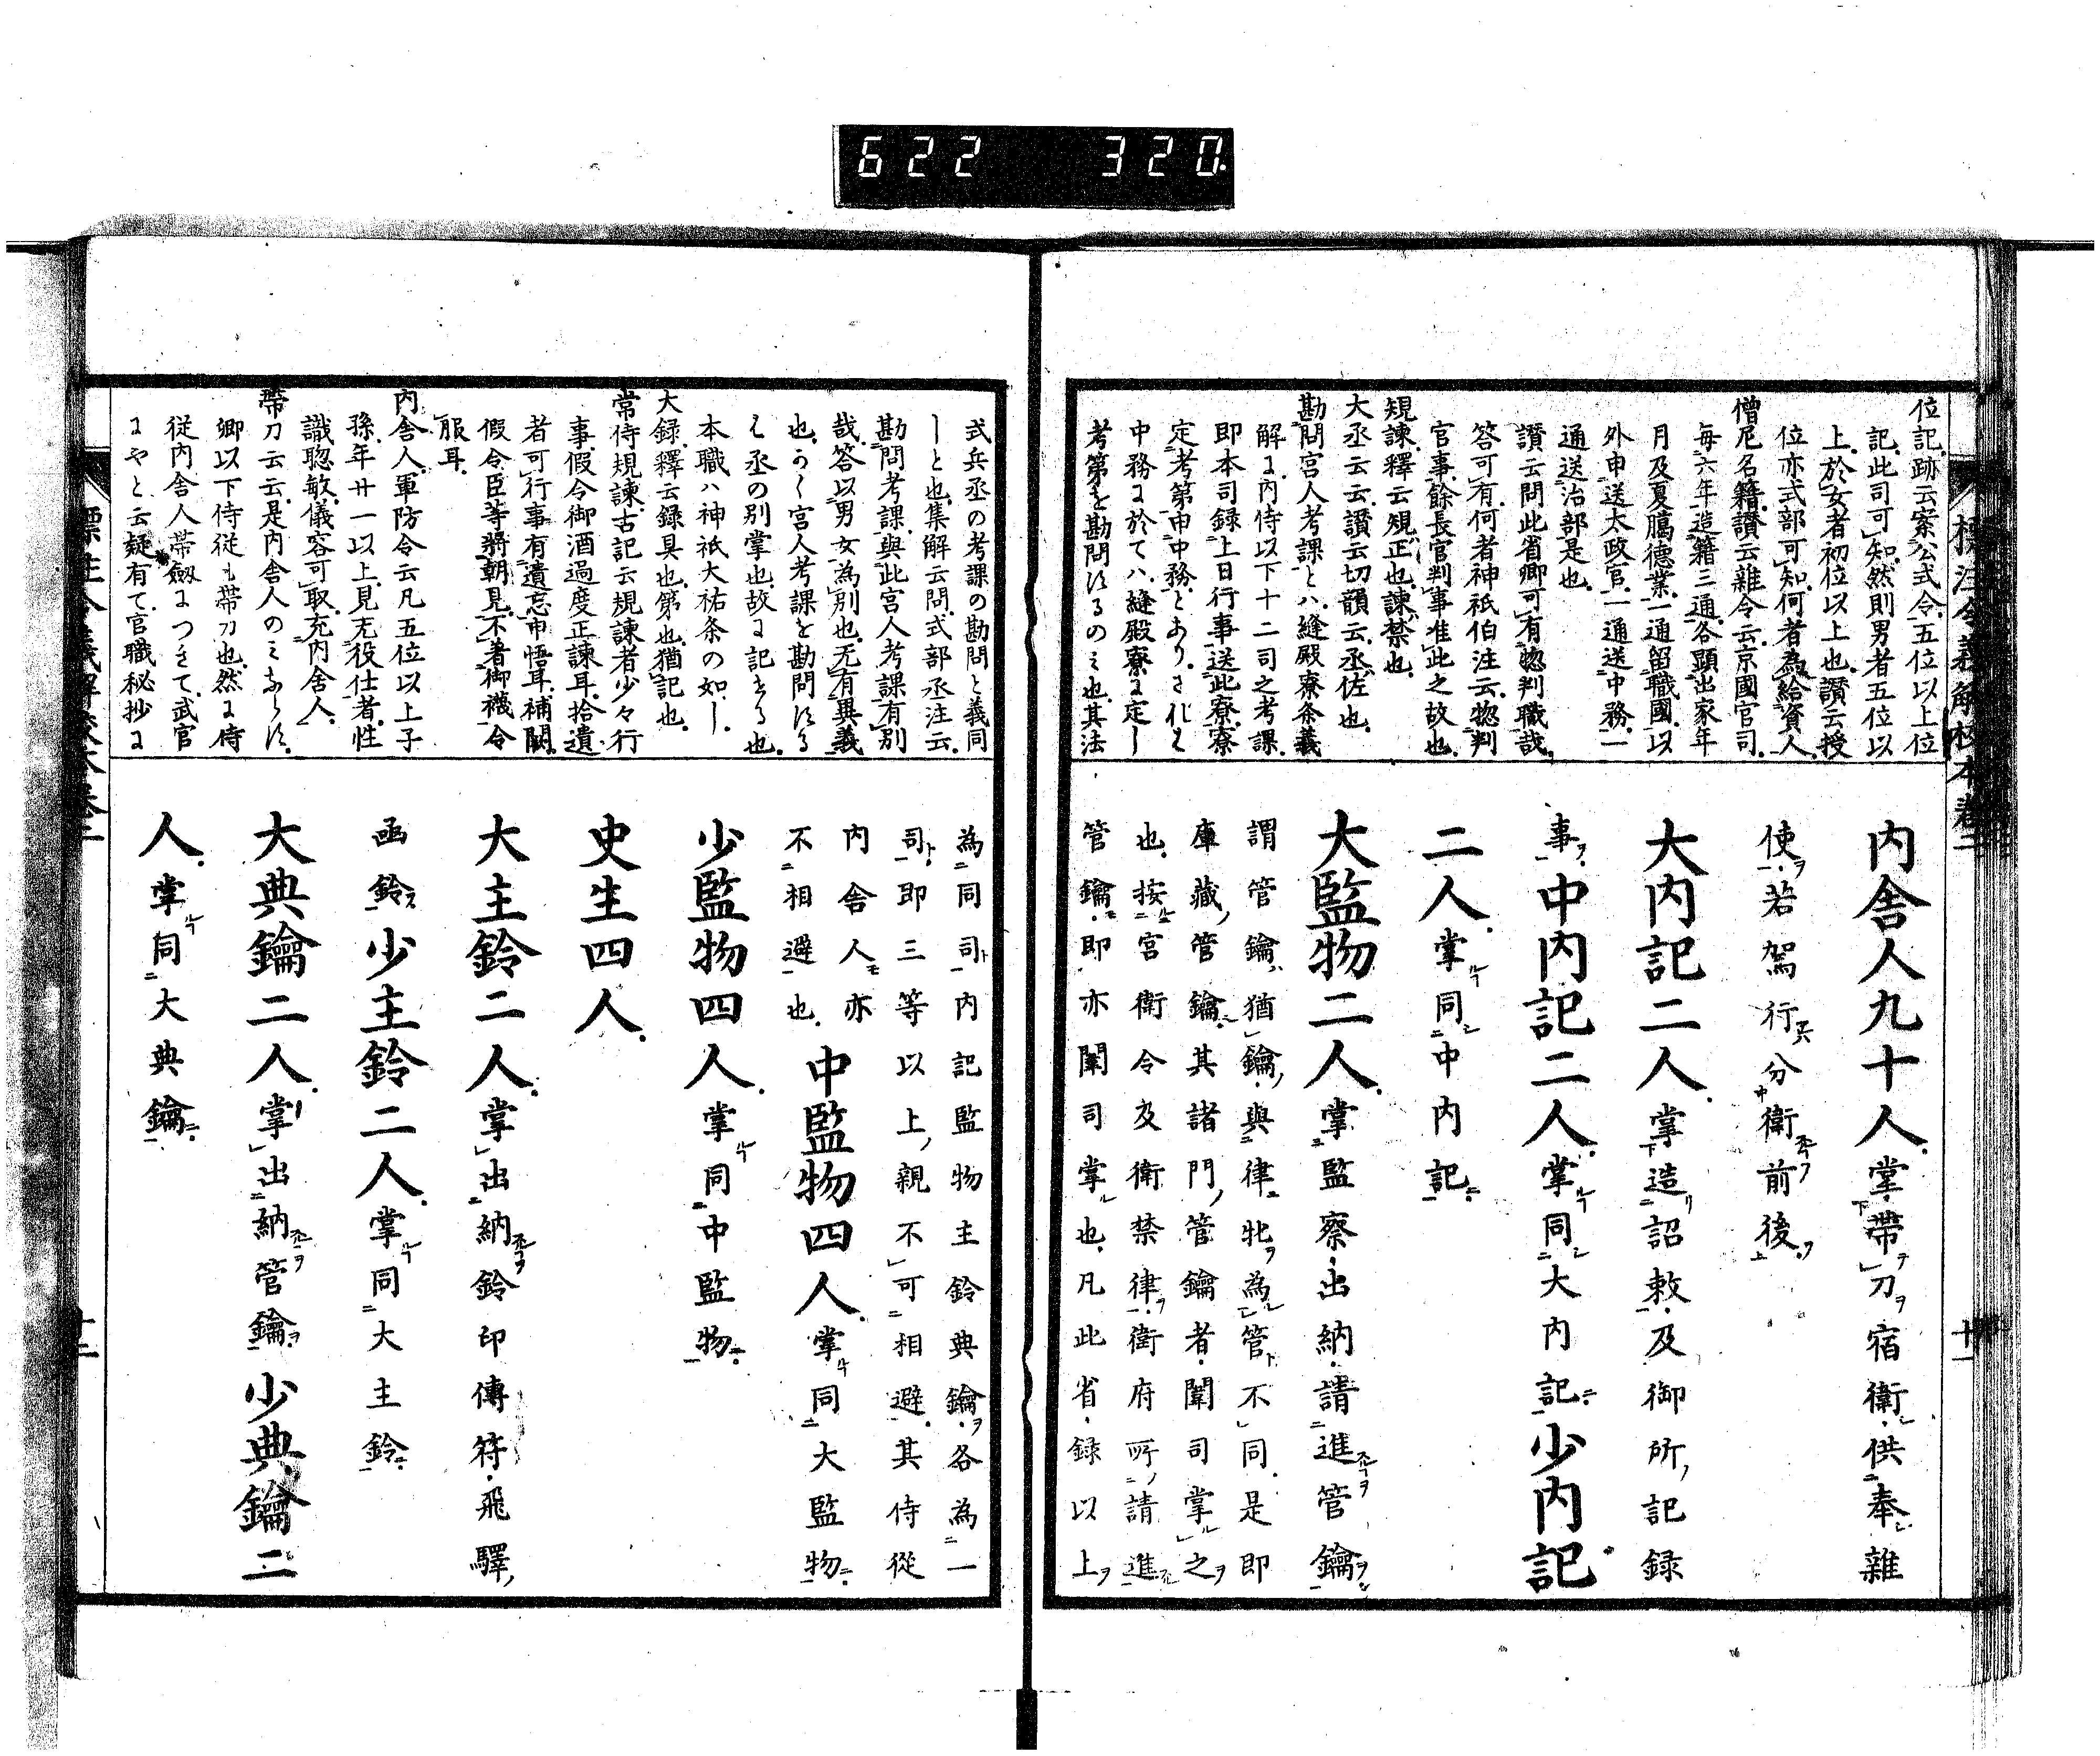 622 320
位記跡云案公式令五位以上位
記此司可知然則男者五位以
上於女者初位以上也讃云授
位亦式部可知何者為給資人
僧尼名籍讃云雜令云京國官司
每六年造籍三通各顯出家年
月及夏臈德業一通留職國以
外申送太政官一通送中務一
通送治部是也
讃云問此省卿可有惣判職哉
答可有何者神祇伯注云惣判
官事餘長官判事准此之故也
規諫釋云規正也諫禁也
大丞云云讃云切韻云丞佐也
勘問宮人考課とハ縫殿寮条義
解に内侍以下十二司之考課
即本司録上日行事送此寮寮
定考第申中務とありされは
中務に於てハ縫殿寮に定し
考第を勘問するのミ也其法
內舍人九十人掌帶刀宿衛供奉雜
使若駕行分衛前後
大內記二人掌造詔敕及御所記録
事中內記二人掌同大內記少內記
二人掌同中內記
大監物二人掌監察出納請進管鑰
謂管鑰猶鑰與律牝為管不同是即
庫藏管鑰其諸門管鑰者闈司掌之
也按宮衛令及衛禁律衛府所請進
管鑰即亦闈司掌也凡此省録以上
式兵丞の考課の勘問と義同
しと也集解云問式部丞注云
勘問考課與此宮人考課有別
哉答以男女為別也无有異義
也かく宮人考課を勘問する
は丞の別掌也故に記せる也
本職ハ神祇大祐条の如し
大録釋云録具也第也猶記也
常侍規諫古記云規諫者少々行
事假令御酒過度正諫耳拾遺
者可行事有遺忘申悟耳補闕
假令臣等將朝見不著御襪令
服耳
內舍人軍防令云凡五位以上子
孫年廿一以上見无役仕者性
識聡敏儀容可取充內舍人
帶刀云云是內舍人のミならす
卿以下侍従も帶刀也然に侍
従內舍人帶劔につきて武官
にやと云疑有て官職秘抄に
為同司內記監物主鈴典鑰各為一
司即三等以上親不可相避其侍從
內舍人亦
不相避也中監物四人掌同大監物
少監物四人掌同中監物
史生四人
大主鈴二人掌出納鈴印傳符飛驛
凾鈴少主鈴二人掌同大主鈴
大典鑰二人掌出納管鑰少典鑰二
人掌同大典鑰